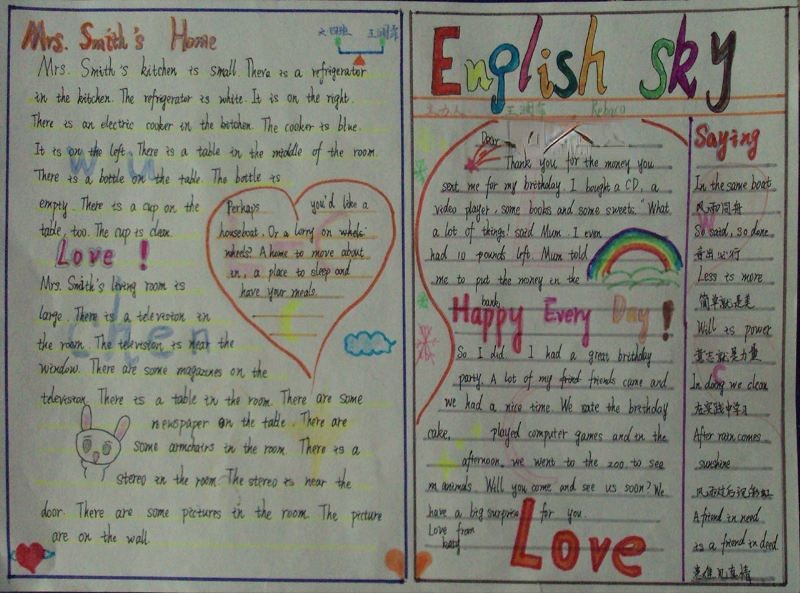 Mrs. Smith's Home
Mrs. Smith's kitchen is small. There is a refrigerator
in the kitchen. The refrigerator is white. It is on the right.
There is an electric cooker in the bitchen. The cooker is blue.
It is on the left. There is a table in the middle of the room.
There is a bottle on the table. The bottle is
empty. There is a cup on the
table, too. The cup is clean.
Love !
Mrs. Smith's living room is
large. There is a television in
the room. The television is near the
window. There are some magazines on the
television. There is a table in the room. There are some
newspaper on the table. There are
some armchairs in the room. There is a
stereo in the room. The stereo is near the
door. There are some pictures in the room. The picture
are on the wall.
Wu
Chen
Perhaps you'd like a
houseboat. Or a lorry on wheels
wheels? A home to move about
in, a place to sleep and
have your meals.
English sky
Dear
Thank you for the money you
sent me for my birthday. I bought a CD, a
video player, some books and some sweets. "What
a lot of things! said Mum. I even
had 10 pounds left. Mum told
me to put the money in the
bank.
Happy Every Day !
So I did. I had a great birthday
party. A lot of my friend friends came and
we had a nice time. We sate the birthday
cake, played computer games and in the
afternoon, we went to the zoo to see
m animals. Will you come and see us soon? We
have a big surprise for you.
Love from
Love
Saying
In the same boat
风雨同舟
So said, so done
言出必行
Less is more
简单就是美
Will is power
意志就是力量
In doing we clean
在实践中学习
After rain comes
sunshine
A friend in need
is a friend in deed
患难见真情